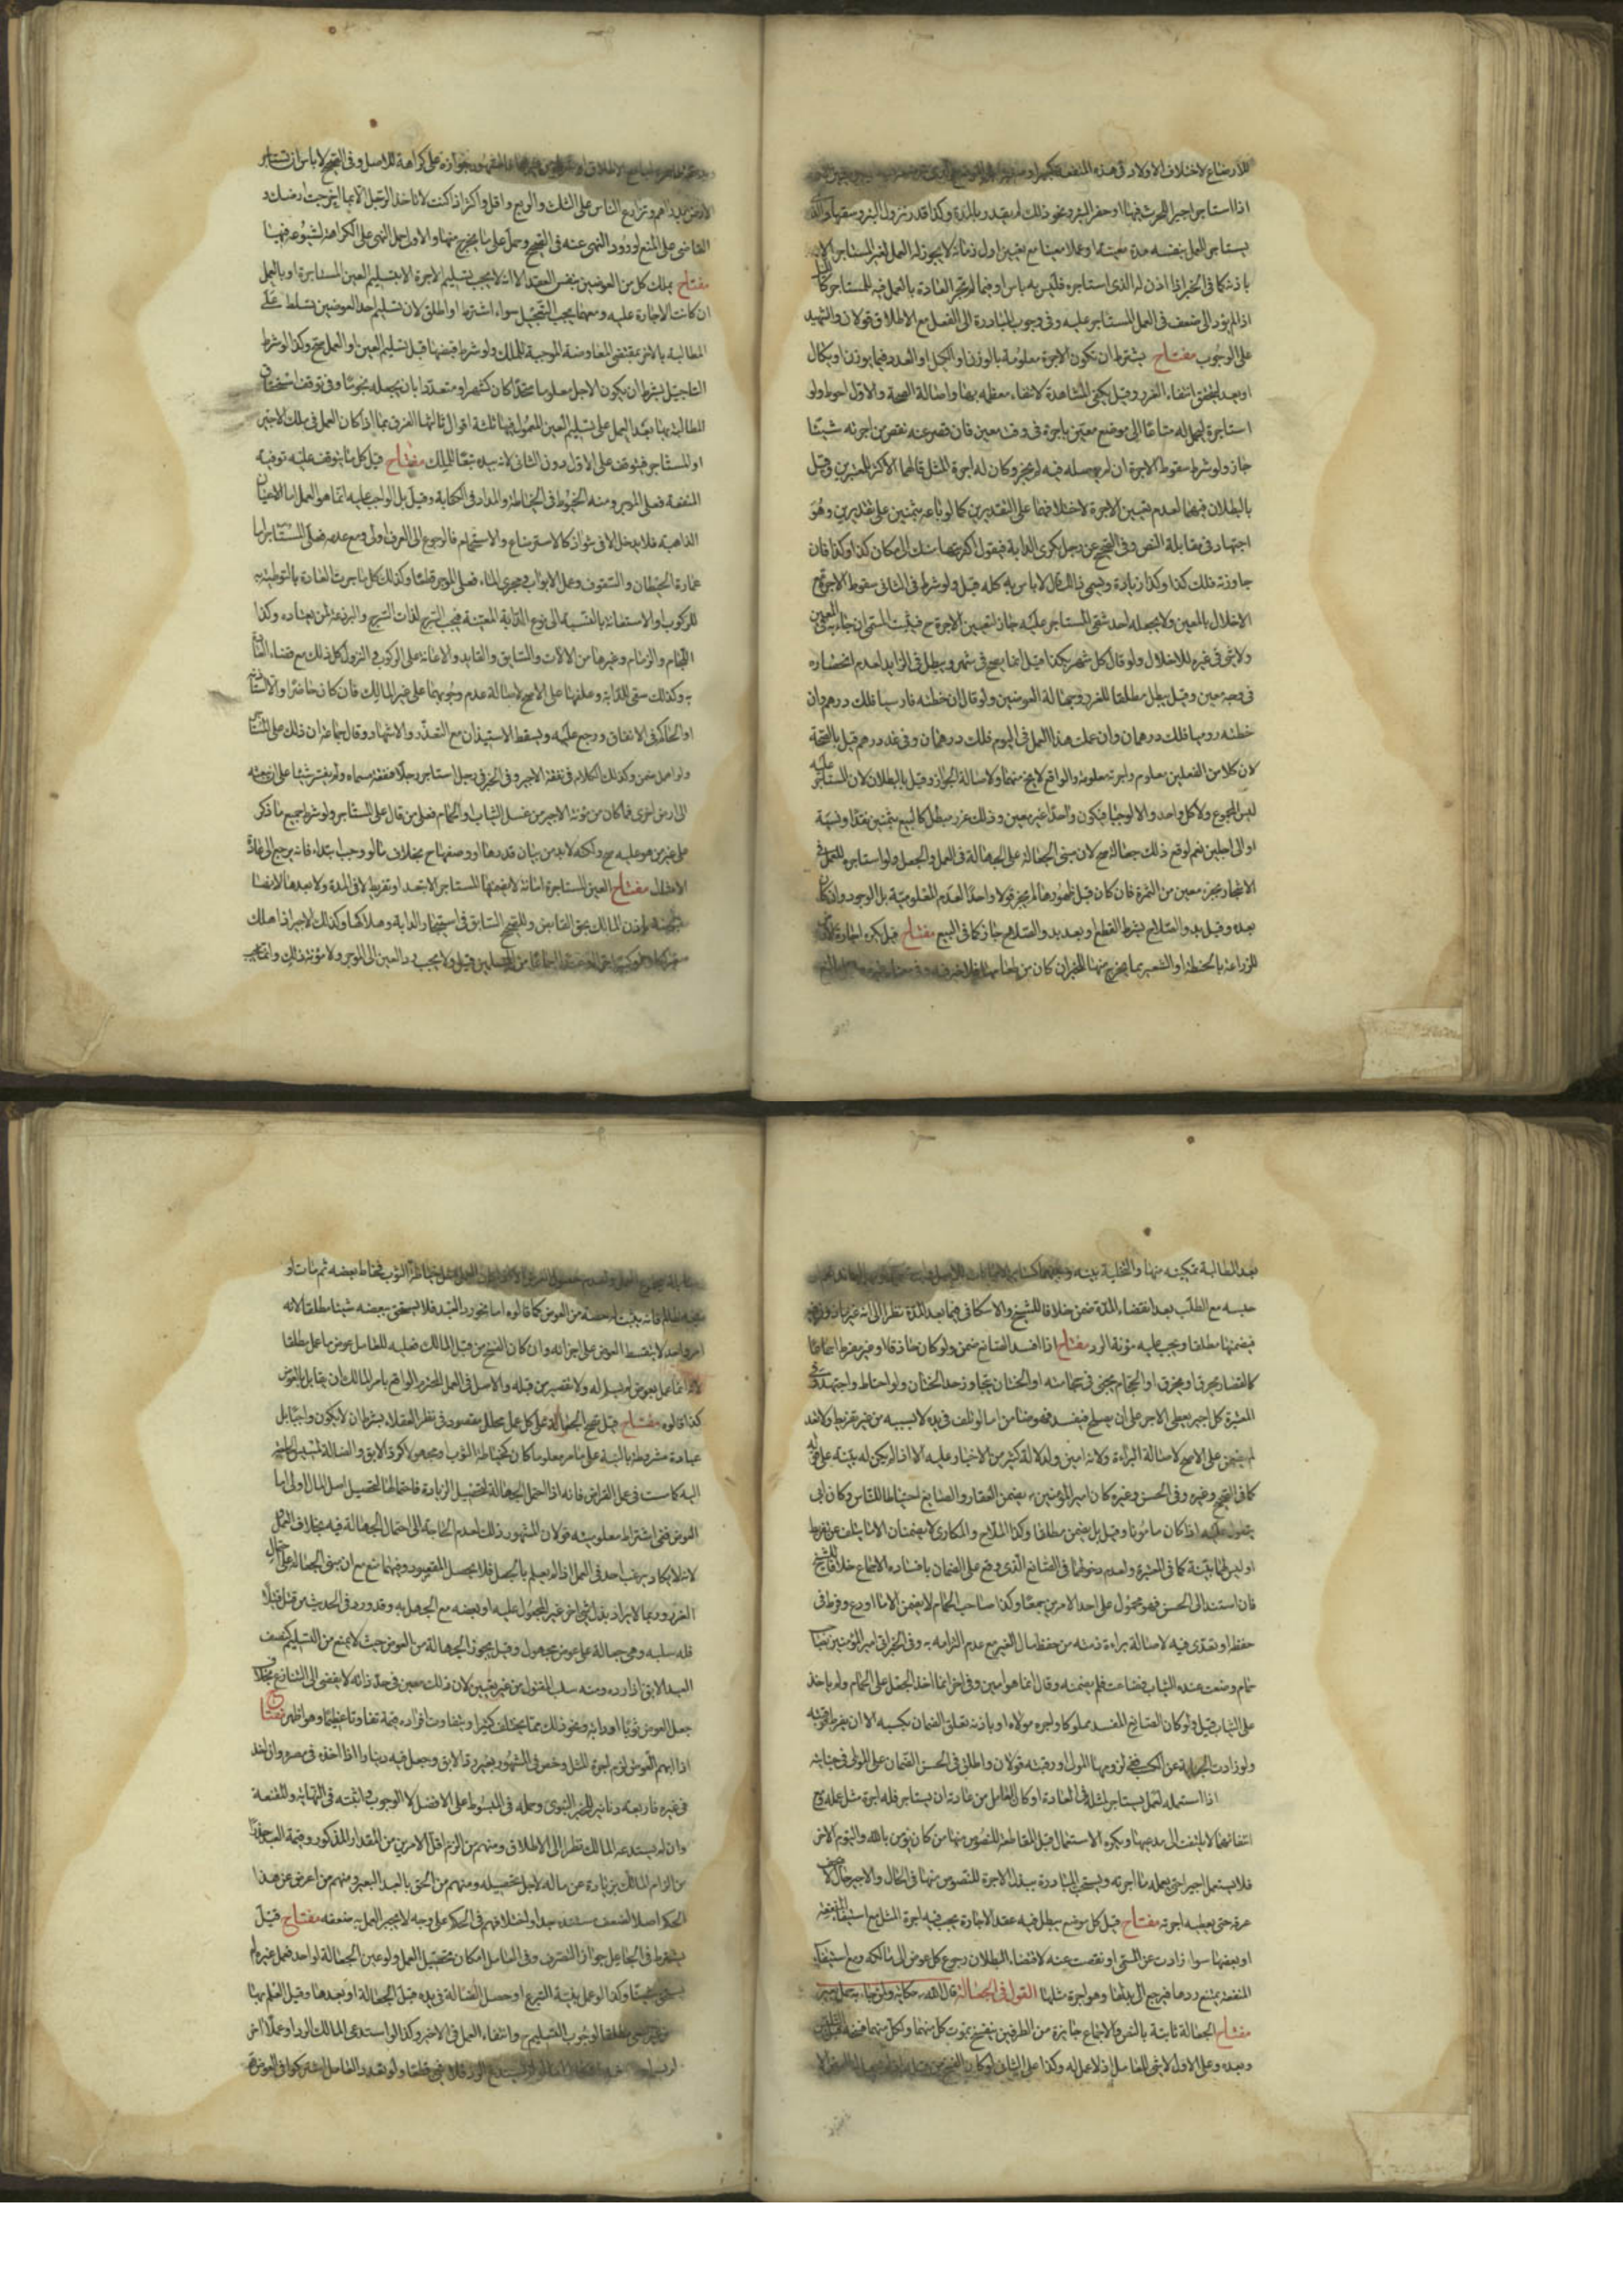 للارضاع لاختلاف الاولاد في هذه المنفعة
اذا استاجر اجيرا ليحرث فيها او حفر البئر ونحو ذلك لم يقدر بالمدة وكذا قدر نزول البئر وسعتها
يستاجر للعمل بنفسه مدة معينة او عملا معينا مع تعيين اول زمانه لا يجوز له العمل لغير المستاجر الا
باذنه كما في الخبر اذن له الذي استاجره فليس به باس او فيما لم تجر العادة بالعمل فيه للمستاجر
اذا لم يؤد الى ضعف في العمل المستاجر عليه وفي وجوب المبادرة الى الفعل مع الاطلاق قولان والشهيد
على الوجوب مفتاح يشترط ان تكون الاجرة معلومة بالوزن او الكيل او العدد فيما يوزن او يكال
او يعد ليتحقق انتفاء الغرر وقيل يكفي المشاهدة لانتفاء معظمه بها واصالة الصحة والاول احوط ولو
استاجره ليحمل له متاعا الى موضع معين باجرة في وقت معين فان قصر عنه نقص من اجرته شيئا
جاز ولو شرط سقوط الاجرة ان لم يوصله فيه لم يجز وكان له اجرة المثل قالهما الاكثر للخبرين وقيل
بالبطلان فيهما لعدم تعيين الاجرة لاختلافهما على التقديرين كما لو باعه بثمنين على تقديرين وهو
اجتهاد في مقابلة النص وفي الصحيح عن رجل يكري الدابة فيقول اكتريتها منك الى مكان كذا وكذا فان
جاوزته فلك كذا وكذا زيادة ويسمي ذلك قال لا باس به كله قيل ولو شرط في الثاني سقوط الاجرة مع
الاخلال بالمعين ولا يجعله احد شقي المستاجر عليه جاز لتعيين الاجرة ح فيثبت المسمى ان جاء بالمعين
ولا شئ في غيره للاخلال ولو قال كل شهر بكذا قيل انما يصح في شهر ويبطل في الزايد لعدم انحصاره
في وجه معين وقيل يبطل مطلقا للغرر وجهالة العوضين ولو قال ان خطته فارسيا فلك درهم وان
خطته روميا فلك درهمان وان عملت هذا العمل في اليوم فلك درهمان وفي غد درهم قيل بالصحة
لان كلا من الفعلين معلوم واجرته معلومة والواقع لا يخ منهما ولاصالة الجواز وقيل بالبطلان لان المستاجر عليه
ليس المجموع ولا كل واحد والا لوجبا فيكون واحدا غير معين وذلك غرر مبطل كالبيع بثمنين نقدا ونسية
او الى اجلين نعم لو وقع ذلك جعالة صح لان مبنى الجعالة على الجهالة في العمل والجعل ولو استاجره للعمل في
الاشجار بجزء معين من الثمرة فان كان قبل ظهورها لم يجز قولا واحدا لعدم المعلومية بل الوجود وان كان
بعده وقبل بدو الصلاح بشرط القطع او بعد بدو الصلاح جاز كما في البيع مفتاح قيل يكره اجارة الارض
للزراعة بالحنطة او الشعير بما يخرج منها للخبر ان كان من طعامها فلا خير فيه
المشهور جوازه على كراهة للاصل وفي الصحيح لا باس ان تستاجر
الارض بدراهم وتزارع الناس على الثلث والربع واقل واكثر اذا كنت لا تاخذ الرجل الا بما اخرجت ارضك و
القاضي على المنع لورود النهي عنه في الصحيح وحمل على ما يخرج منها والاول حمل النهي على الكراهة لشيوعه فيها
مفتاح يملك كل من العوضين بنفس العقد الا انه لا يجب تسليم الاجرة الا بتسليم العين المستاجرة او بالعمل
ان كانت الاجارة عليه ومعهما يجب التعجيل سواء اشترط او اطلق لان تسليم احد العوضين تسلط على
المطالبة بالاخر بمقتضى المعاوضة الموجبة للملك ولو شرط قبضها قبل تسليم العين او العمل صح وكذا لو شرط
التاجيل بشرط ان يكون الاجل معلوما متحدا كان كشهر او متعددا بان يجعله نجوما وفي توقف استحقاق
المطالبة بها بعد العمل على تسليم العين المعمول فيها ثلثة اقوال ثالثها الفرق بما اذا كان العمل في ملك الاجير
او المستاجر فيتوقف على الاول دون الثاني لانه بيده تبعا للملك مفتاح قيل كل ما يتوقف عليه توفية
المنفعة فعلى الموجر ومنه الخيوط في الخياطة والمداد في الكتابة وقيل بل الواجب عليه انما هو العمل اما الاعيان
الذاهبة فلا يدخل الا في شواذ كالاسترضاع والاستحمام فالرجوع الى العرف اولى ومع عدمه فعلى المستاجر اما
عمارة الحيطان والسقوف وعمل الابواب ومجرى الماء فعلى الموجر قطعا وكذلك كل ما جرت العادة بالتوطئة به
للركوب او الاستفادة بالنسبة الى نوع الدابة المعينة فيجب السرج لذات السرج والبرذعة لمن يعتاده وكذا
اللجام والزمام وغيرهما من الالات والسايق والقايد والاعانة على الركوب والنزول كل ذلك مع قضاء العادة
به وكذلك سقي الدابة وعلفها على الاصح لاصالة عدم وجوبهما على غير المالك فان كان حاضرا والا استاذنه
او الحاكم في الانفاق ورجع عليه ويسقط الاستيذان مع التعذر والاشهاد وقال جماعة ان ذلك على المستاجر
ولو اهمل ضمن وكذلك الكلام في نفقة الاجير وفي الخبر في رجل استاجر رجلا بنفقة مسماة ولم يفسر شيئا على ان يبعثه
الى ارض اخرى فما كان من مؤنة الاجير من غسل الثياب والحمام فعلى من قال على المستاجر ولو شرط جميع ما ذكر
على غير من هو عليه صح ولكنه لا بد من بيان قدرها ووصفها ح بخلاف ما لو وجب ابتداء فانه يرجع الى عادة
الامثال مفتاح العين المستاجرة امانة لا يضمنها المستاجر الا بتعد او تفريط لا في المدة ولا بعدها لانه قبضها
باذن المالك بحق القابض وللصحيح السابق في استيجار الدابة وهلاكها وكذلك الاجير اذا هلك
من المحلين قيل ولا يجب رد العين الى الموجر ولا مؤنة ذلك وانما يجب
بعد المطالبة تمكينه منها والتخلية بينه وبينها كساير الامانات
حبسه مع الطلب بعد انقضاء المدة ضمن خلافا للشيخ والاسكافي فيما بعد المدة نظرا الى انه غير ماذون فيه
فيضمنها مطلقا ويجب عليه مؤنة الرد مفتاح اذا افسد الصانع ضمن ولو كان حاذقا او غير مفرط اجماعا
كالقصار يحرق او يخرق او الحجام يجني في حجامته او الختان يتجاوز حد الختان ولو احتاط واجتهد وفي
المعتبرة كل اجير يعطى الاجر على ان يصلح فيفسد فهو ضامن اما لو تلف في يده لا بسببه من غير تفريط ولا تعد
لم يضمن على الاصح لاصالة البراءة ولانه امين ولدلالة كثير من الاخبار عليه الا اذا لم يكن له بينة على قوله
كما في الصحيح وغيره وفي الحسن وغيره كان امير المؤمنين ع يضمن القصار والصايغ احتياطا للناس وكان ابي
يتطول عليه اذا كان مامونا وقيل بل يضمن مطلقا وكذا الملاح والمكاري لا يضمنان الا ما يتلف عن تفريط
او ليس لهما بينة كما في المعتبرة ولعدم دخولهما في الصانع الذي وقع على الضمان بافساده الاجماع خلافا للشيخ
فان استند الى الحسن فهو محمول على احد الامرين جمعا وكذا صاحب الحمام لا يضمن الا ما اودع وفرط في
حفظه او تعدى فيه لاصالة براءة ذمته من حفظ مال الغير مع عدم التزامه به وفي الخبر اتي امير المؤمنين بصاحب
حمام وضعت عنده الثياب فضاعت فلم يضمنه وقال انما هو امين وفي اخر انما اخذ الجعل على الحمام ولم ياخذ
على الثياب قيل ولو كان الصانع المفسد مملوكا واجره مولاه او باذنه تعلق الضمان بكسبه الا ان يفرط فبرقبته
ولو زادت الجناية عن الكسب ففي لزومها المولى او رقبته قولان واطلق في الحسن الضمان على المولى في جنايته
اذا استعمله لعمل يستاجر لمثله في العادة او كان العامل من عادته ان يستاجر فله اجرة مثل عمله ومع
انتفائهما لا يلتفت الى مدعيها ويكره الاستعمال قبل المقاطعة للنصوص منها من كان يؤمن بالله واليوم الاخر
فلا يستعمل اجيرا حتى يعلمه ما اجرته ويستحب المبادرة ببذل الاجرة للنصوص منها في الحمال والاجير قال لا يجف
عرقه حتى يعطيه اجرته مفتاح قيل كل موضع يبطل فيه عقد الاجارة يجب فيه اجرة المثل مع استيفاء المنفعة
او بعضها سواء زادت عن المسمى او نقصت عنه لاقتضاء البطلان رجوع كل عوض الى مالكه ومع استيفاء
المنفعة يمتنع ردها فيرجع الى بدلها وهو اجرة مثلها القول في الجعالة قال الله حكاية ولمن جاء به حمل بعير
مفتاح الجعالة ثابتة بالنص والاجماع جايزة من الطرفين ينفسخ بموت كل منهما ولكل منهما فسخه قبل التلبس
وبعده وعلى الاول لا شئ للعامل اذ لا عمل له وكذا على الثاني لو كان الفسخ من قبله
الثوب فخاط بعضه ثم مات او
حصة من العوض كما قالوه اما نحو رد العبد فلا يستحق ببعضه شيئا مطلقا لانه
امر واحد لا يتقسط العوض على اجزائه وان كان الفسخ من قبل المالك فعليه للعامل عوض ما عمل مطلقا
لانه انما عمل بعوض لم يسلم له ولا تقصير من قبله والاصل في العمل المحترم الواقع بامر المالك ان يقابل بالعوض
كذا قالوه مفتاح قيل تصح الجعالة على كل عمل محلل مقصود في نظر العقلاء بشرط ان لا يكون واجبا بل
عبادة مشروطة بالنية على ما مر معلوما كان كخياطة الثوب او مجهولا كرد الابق والضالة لمسيس الحاجة
اليه كما مست في عمل القراض فانه اذا احتمل الجهالة لتحصيل الزيادة فاحتمالها لتحصيل اصل المال اولى اما
العوض ففي اشتراط معلوميته قولان المشهور ذلك لعدم الحاجة الى احتمال الجهالة فيه بخلاف العمل
لانه لا يكاد يرغب احد في العمل اذا لم يعلم بالجعل فلا يحصل المقصود وفيهما منع مع ان مبنى الجعالة على احتمال
الغرر وربما لا يراد بذل شئ اخر غير المجعول عليه او بعضه مع الجهل به وقد ورد في الحديث من قتل قتيلا
فله سلبه وهي جعالة على عوض مجهول وقيل يجوز الجهالة من العوض حيث لا يمنع من التسليم كنصف
العبد الابق اذا رده ومنه سلب المقتول من غير تعيين لان ذلك معين في حد ذاته لا يفضي الى التنازع بخلاف
جعل العوض ثوبا او دابة ونحو ذلك مما يختلف كثيرا ويتفاوت افراده قيمة تفاوتا عظيما وهو اظهر مفتاح
اذا ابهم العوض لزم اجرة المثل وخص في المشهور بغير رد الابق وجعل فيه دينار اذا اخذه في مصره وان اخذ
في غيره فاربعة دنانير للخبر النبوي وحمله في المبسوط على الافضل لا الوجوب واثبته في النهاية والمقنعة
وان لم يستدعه المالك نظرا الى الاطلاق ومنهم من الزم اقل الامرين من المقدار المذكور وقيمة العبد حذرا
من الزام المالك بزيادة عن ماله لاجل تحصيله ومنهم من الحق بالعبد البعير ومنهم من اعرض عن هذا
الحكم اصلا لضعف مستنده جدا واختلافهم في الحكم على وجه لا يجبر العمل به ضعفه مفتاح قيل
يشترط في الجاعل جواز التصرف وفي العامل امكان تحصيل العمل ولو عين الجعالة لواحد فعمل غيره لم
يستحق شيئا وكذا لو عمل بنية التبرع او حصل الضالة في يده قبل الجعالة او بعدها وقيل العلم بها
مطلقا لوجوب التسليم ح وانتفاء العمل في الاخير وكذا لو استدعى المالك الرد او عملا اخر
الرد فلا شئ قطعا ولو تعدد العامل اشتركوا في العوض